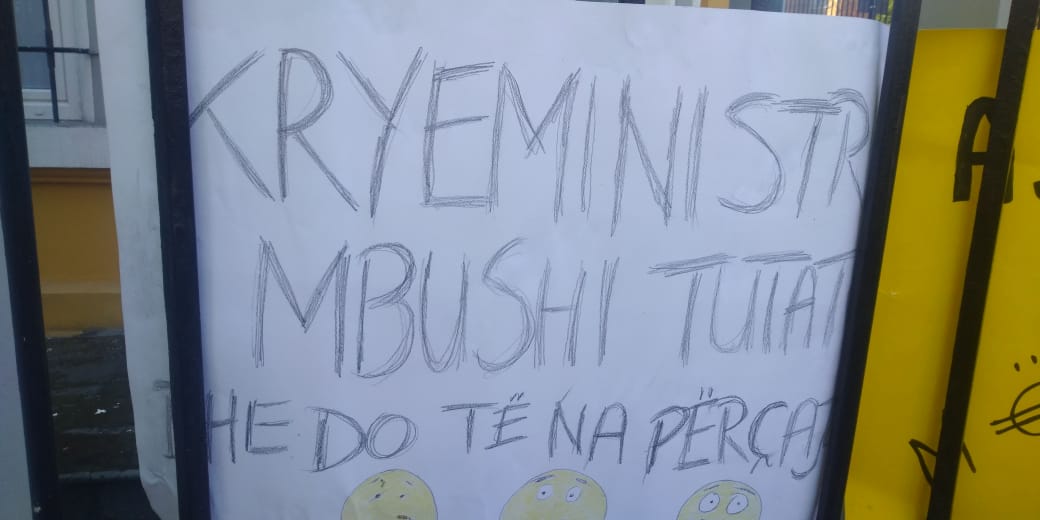 KRYEMINISTR
MBUSHI TUTAT
HE DO TË NA PËRÇAJ